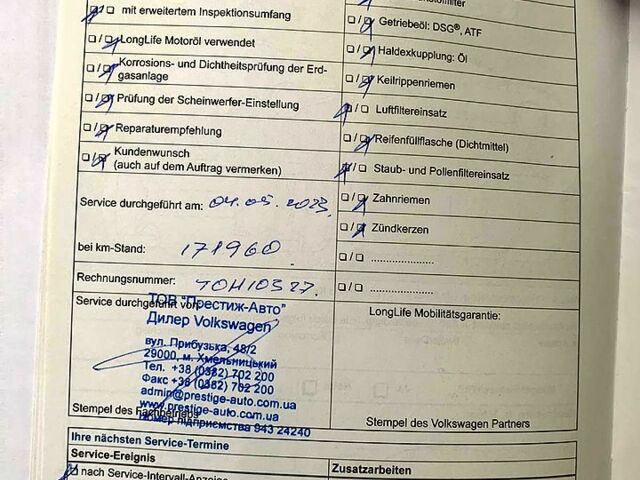 mit erweitertem Inspektionsumfang
LongLife Motoröl verwendet
Korrosions- und Dichtheitsprüfung der Erd-
gasanlage
Prüfung der Scheinwerfer-Einstellung
Reparaturempfehlung
Kundenwunsch
(auch auf dem Auftrag vermerken)
Getriebeöl: DSG®, ATF
Haldexkupplung: Öl
Keilrippenriemen
Luftfiltereinsatz
Reifenfüllflasche (Dichtmittel)
Staub- und Pollenfiltereinsatz
Zahnriemen
Zündkerzen
Service durchgeführt am: 04.05.2023
bei km-Stand: 171960
Rechnungsnummer:
Service durchgeführt von:
ТОВ "Престиж-Авто"
Дилер Volkswagen
вул. Прибузька, 48/2
29000, м. Хмельницький
Тел. +38 (0382) 702 200
Факс +38 (0382) 702 200
admin@prestige-auto.com.ua
www.prestige-auto.com.ua
номер підприємства 943 24240
Stempel des Fachbetriebs
LongLife Mobilitätsgarantie:
Stempel des Volkswagen Partners
Ihre nächsten Service-Termine
Service-Ereignis
Zusatzarbeiten
nach Service-Intervall-Anzeige